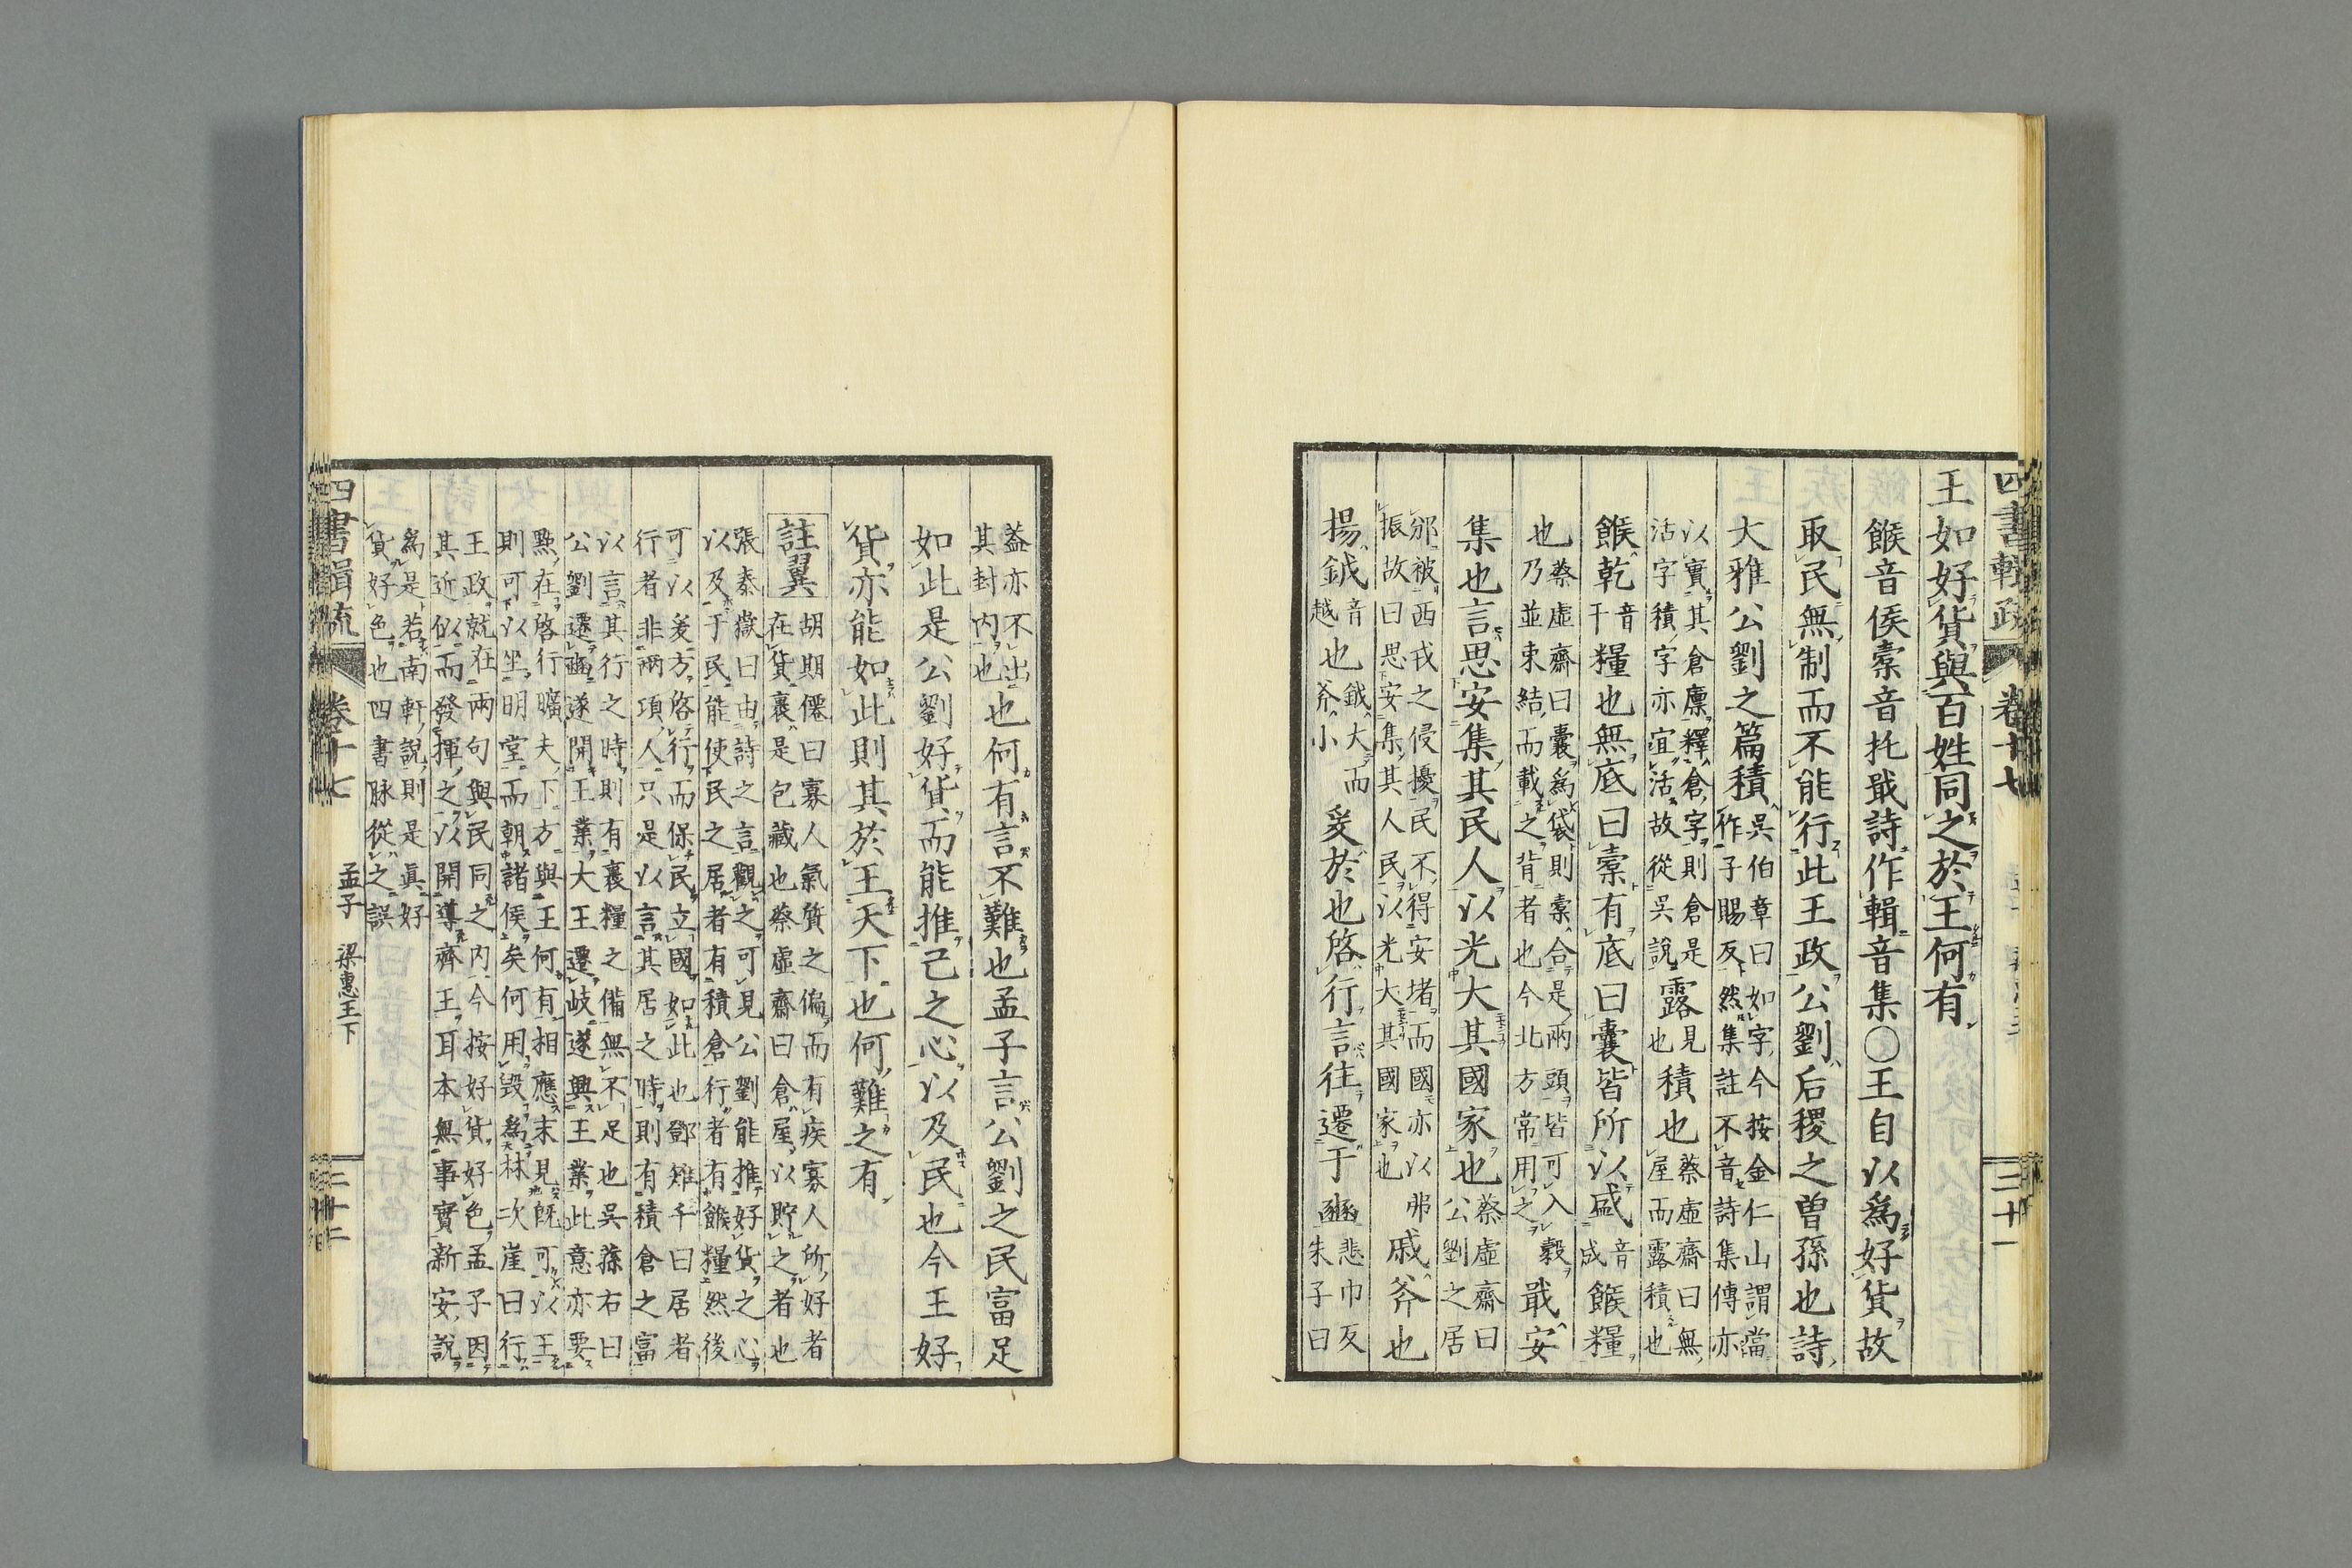 四書輯疏 卷十七 二十一
王如好貨與百姓同之於王何有
餱音侯橐音托戢詩作輯音集○王自以爲好貨故
取民無制而不能行此王政公劉后稷之曾孫也詩
大雅公劉之篇積吳伯章曰如字今按金仁山謂當作子賜反然集註不音詩集傳亦
以實其倉廩釋倉字則倉是活字積字亦宜活故從吳說露見也積也蔡虛齋曰無屋而露積也
餱乾音干糧也無底曰橐有底曰囊皆所以盛音成餱糧
也蔡虛齋曰囊爲袋則橐合是兩頭皆可入穀乃並束結而載之背者也今北方常用之戢安
集也言思安集其民人以光大其國家也蔡虛齋曰公劉之居
邠被西戎之侵擾民不得安堵而國亦以弗振故曰思安集其人民以光大其國家也戚斧也
揚鉞音越也鉞大而斧小爰於也啓行言往遷于豳悲巾反朱子曰
蓋亦不出其封内也也何有言不難也孟子言公劉之民富足
如此是公劉好貨而能推己之心以及民也今王好
貨亦能如此則其於王天下也何難之有
註翼胡期僊曰寡人氣質之偏而有疾寡人所好者在貨裏是包藏也蔡虛齋曰倉屋以貯之者也
張泰嶽曰由詩之言觀之可見公劉能推好貨之心以及于民能使民之居者有積倉行者有餱糧然後
可以爰方啓行而保民立國如此也鄧雉千曰居者行者非兩項人只是以言其居之時則有積倉之富
以言其行之時則有裹糧之備無不足也吳蓀右曰公劉遷豳遂開王業大王遷岐遂興王業此意亦要
點在啓行曠夫下方與王何有相應末見既可以王則可以坐明堂而朝諸侯矣何用毀爲林次崖曰行
王政就在兩句與民同之内今按好貨好色孟子因其近似而發揮之以開導齊王耳本無事實新安說
爲是若南軒說則是眞好貨好色也四書脉從之誤
四書輯疏 卷十七 孟子 梁惠王下 二十二